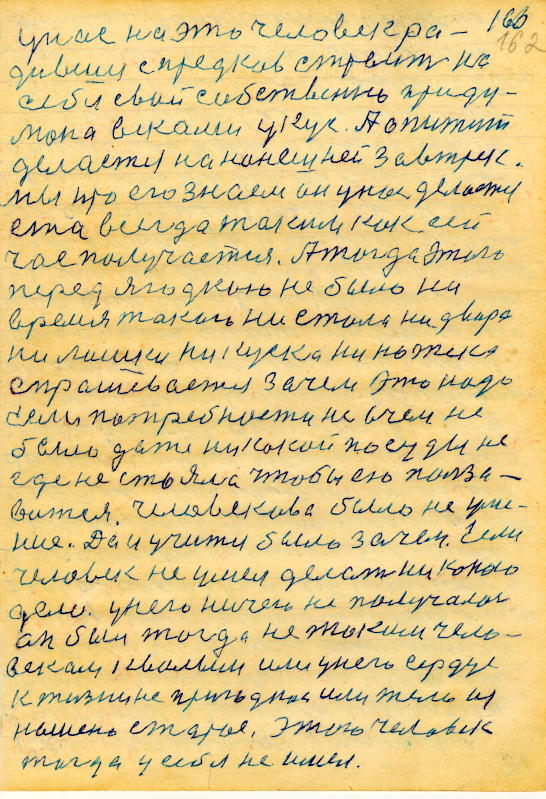 160
162
у нас на это человек ра-
дивши с предков стремит на
себя свой собственно приду-
мона веками укус. А опитит
деластся на нонешней завтрек.
мы про его знаем он у нас деластся
ета всегда таким как сей
час получается. А тогда этого
перед ягодкою не было на
время такого ни стола ни двора
ни ложки ни куска ни ножека
спрашевается зачем это надо
если потребности не в чем не
было даже никокой посуды не
где не стояла чтобы ею полза-
ватся. человекова было не уме-
ние. Да и учится было зачем. Если
человек не умел делат никокого
дела. у него ничего не получалос
он был тогда не таким чело-
векам
или у него сердце
к жизни не пригодное или тело из
ношено старое. Этого человек
тогда у себя не имел.